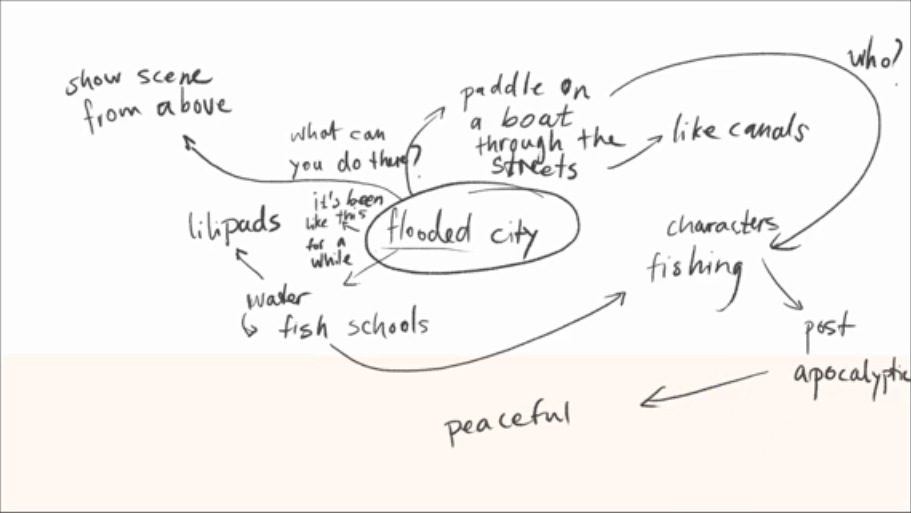 show scene
from above
what can
you do there?
paddle on
a boat
through the
streets
who?
like canals
it's been
like this
for a
while
flooded city
lilipads
water
fish schools
characters
fishing
post
apocalyptic
peaceful